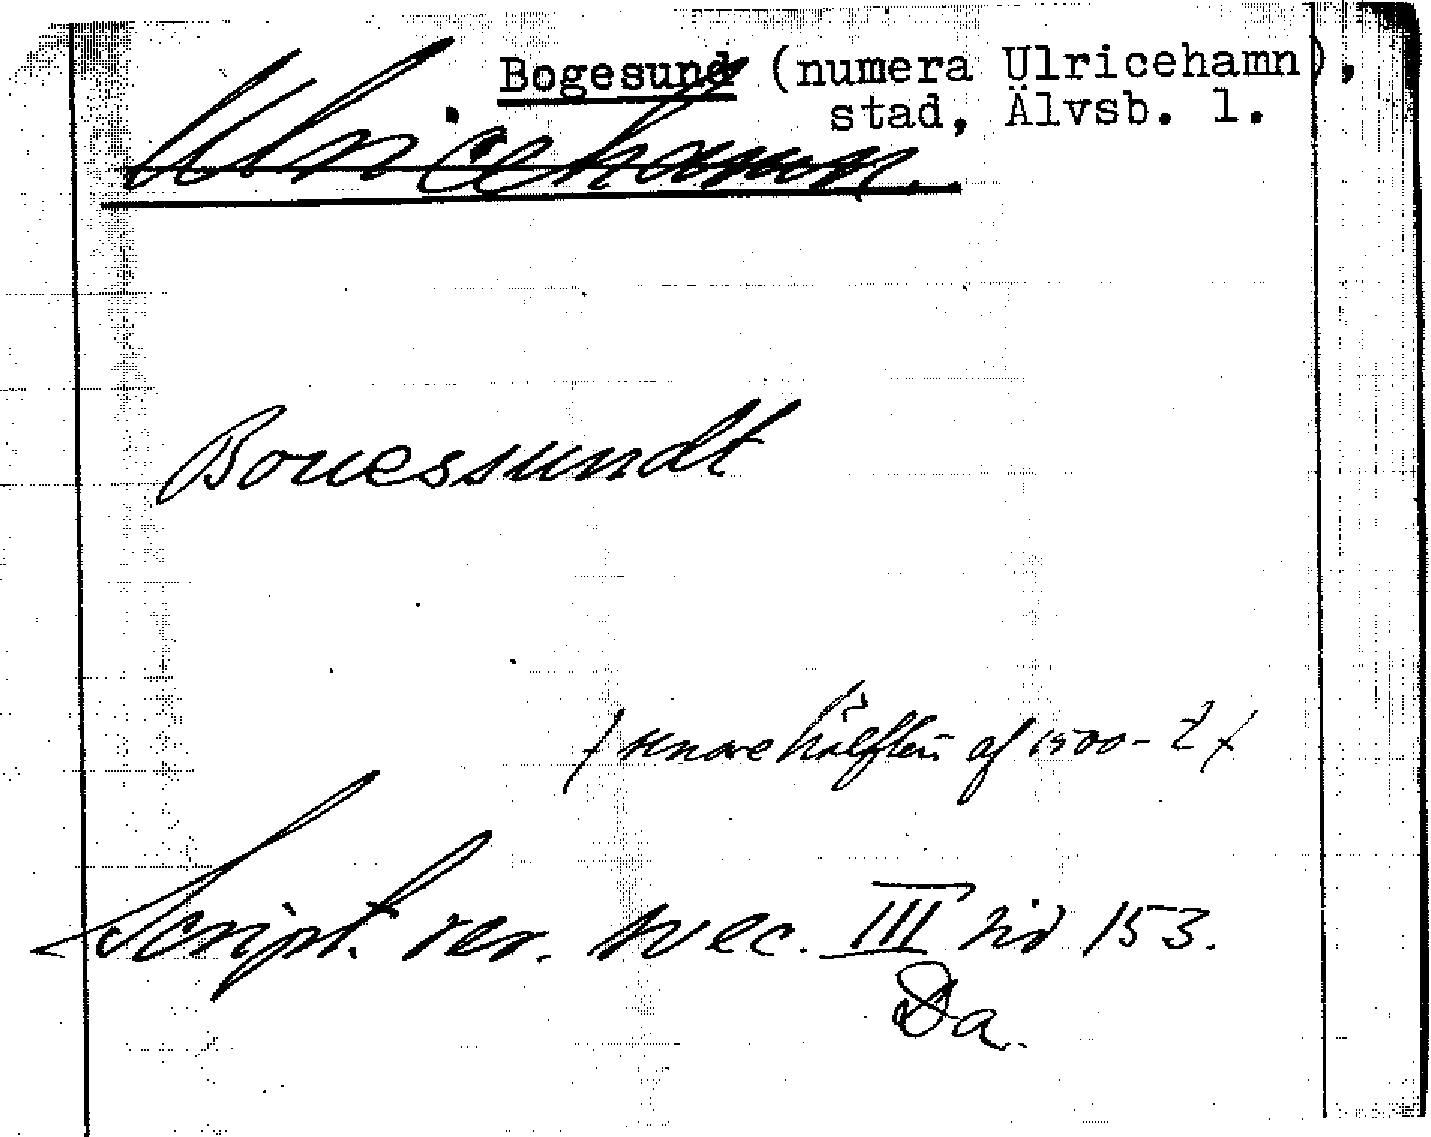 Bogesund (numera Ulricehamn),
stad, Älvsb. l.
Ulricehamn.
Bouessundt
(senare hälften af 1500-t)
Script. rer. svec. III sid 153.
Da.